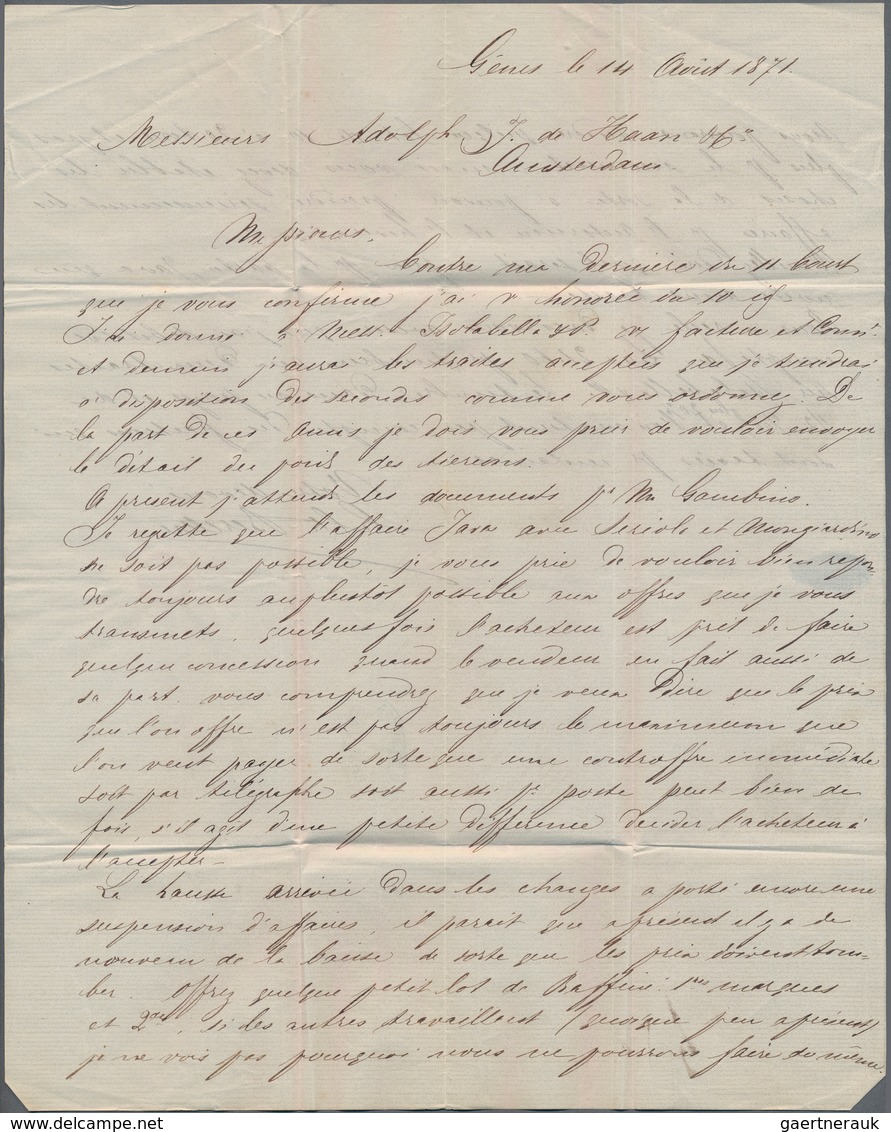 Gênes le 14 Août 1871.
Messieurs Adolph J. de Haan & Co
Amsterdam
Messieurs.
Contre ma dernière du 11 Court
que je vous confirme j'ai v honorée du 10 id
J'ai donné à Mess. Isolabella & P. v facture et Conn.t
et demain j'aurai les traites acceptées que je tiendrai
à disposition des secondes comme vous ordonnez. De
la part de ces Amis je dois vous prier de vouloir envoyer
le détail du poid des tierçons.
A présent j'attends les documents pr. Mr Gambino.
Je regrette que l'affaire Java avec Seriolo et Mongiardino
ne soit pas possible, je vous prie de vouloir bien repon-
dre toujours auplustôt possible aux offres que je vous
transmets, quelques fois l'acheteur est prêt de faire
quelque concession quand le vendeur en fait aussi de
sa part. vous comprendrez que je veux dire que le prix
que l'on offre n'est pas toujours le maximum que
l'on veut payer de sorte que une controffre immédiate
soit par télégraphe soit aussi pr. poste peut bien de
fois, s'il agit d'une petite différence decider l'acheteur à
l'accepter –
La hausse arrivée dans les changes a porté encore une
suspension d'affaires, il parait que apresent il y a de
nouveau de la baisse de sorte que les prix doivent tom-
ber. Offrez quelque petit lot de Raffiné 1res marques
et 2des, si les autres travaillent (quoique peu apresent)
je ne vois pas pourquoi nous ne pourrons faire do même.
gaertnerauk